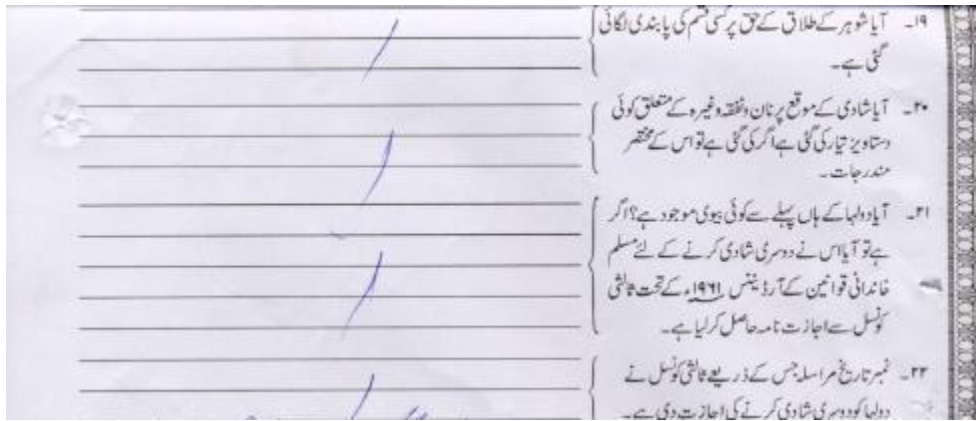 ۱۹۔ آیا شوہر کے طلاق کے حق پر کسی قسم کی پابندی لگائی
گئی ہے۔
۲۰۔ آیا شادی کے موقع پر نان و نفقہ وغیرہ کے متعلق کوئی
دستاویز تیار کی گئی ہے اگر کی گئی ہے تو اس کے مختصر
مندرجات۔
۲۱۔ آیا دولہا کے ہاں پہلے سے کوئی بیوی موجود ہے؟ اگر
ہے تو آیا اس نے دوسری شادی کرنے کے لئے مسلم
خاندانی قوانین کے آرڈیننس ۱۹۶۱ء کے تحت ثالثی
کونسل سے اجازت نامہ حاصل کر لیا ہے۔
۲۲۔ نمبر تاریخ مراسلہ جس کے ذریعے ثالثی کونسل نے
دولہا کو دوسری شادی کرنے کی اجازت دی ہے۔